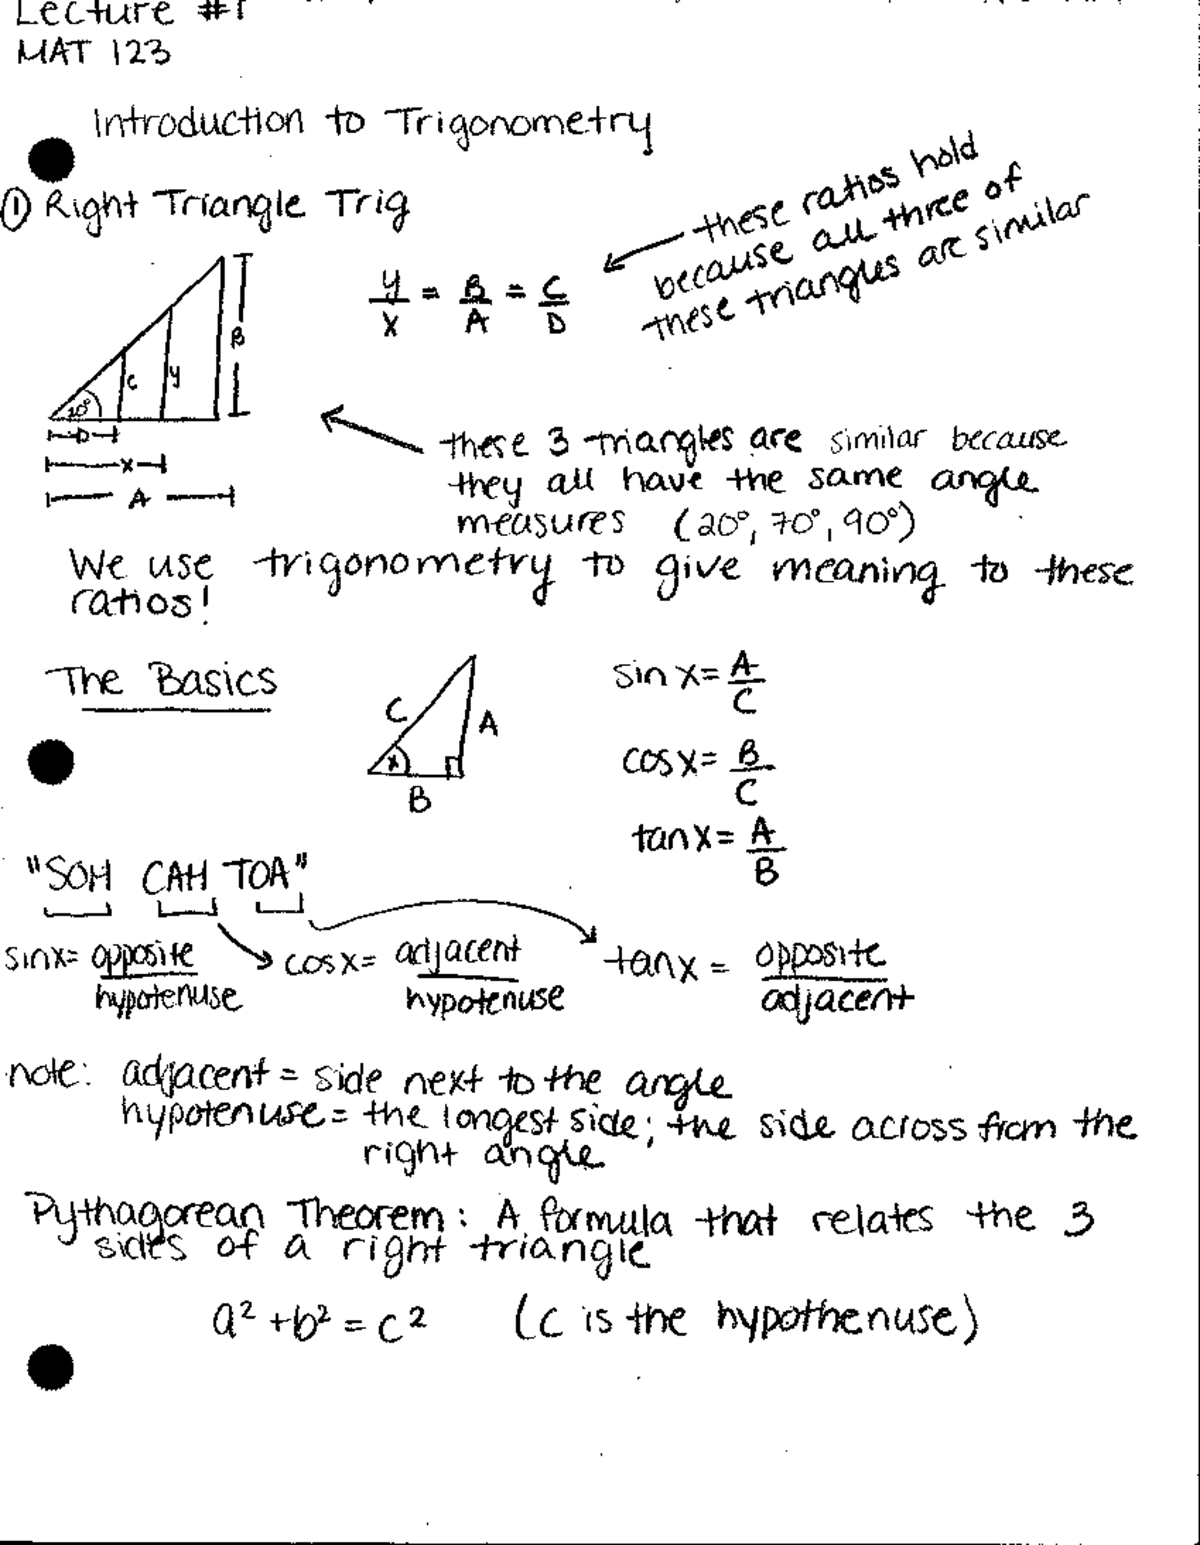 Lecture #1
MAT 123
Introduction to Trigonometry
① Right Triangle Trig
y/x = B/A = C/D
these ratios hold
because all three of
these triangles are similar
B
c
y
20°
D
x
A
these 3 triangles are similar because
they all have the same angle
measures (20°, 70°, 90°)
We use trigonometry to give meaning to these
ratios!
The Basics
C
A
x
B
sin x = A/C
cos x = B/C
tan x = A/B
"SOH CAH TOA"
sinx = opposite/hypotenuse
cosx = adjacent/hypotenuse
tanx = opposite/adjacent
note: adjacent = side next to the angle
hypotenuse = the longest side; the side across from the
right angle
Pythagorean Theorem: A formula that relates the 3
sides of a right triangle
a² + b² = c² (c is the hypothenuse)